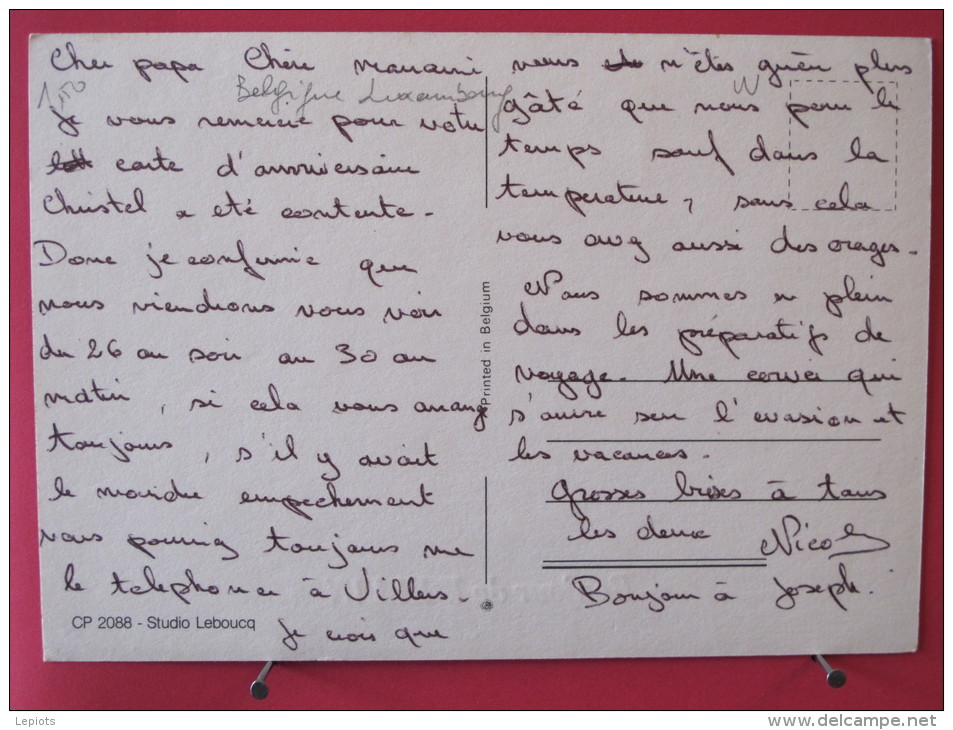 Cher papa Chère maman
1,50 Belgique Luxembourg
Je vous remercie pour votre
carte d'anniversaire
Christel a été contente.
Donc je confirme que
nous viendrons vous voir
du 26 au soir au 30 au
matin, si cela vous arrange
toujours, s'il y avait
le moindre empechement
vous pourriez toujours me
le telephoner à Villers.
CP 2088 - Studio Leboucq
Je crois que
Printed in Belgium
vous n'êtes guère plus
W
gâté que nous pour le
temps sauf dans la
temperature, sans cela
vous avez aussi des orages.
Nous sommes en plein
dans les préparatifs de
voyage. Une corvée qui
s'ouvre sur l'evasion et
les vacances.
Grosses bises à tous
les deux Nicole
Bonjour à Joseph.
Lepiots
www.delcampe.net